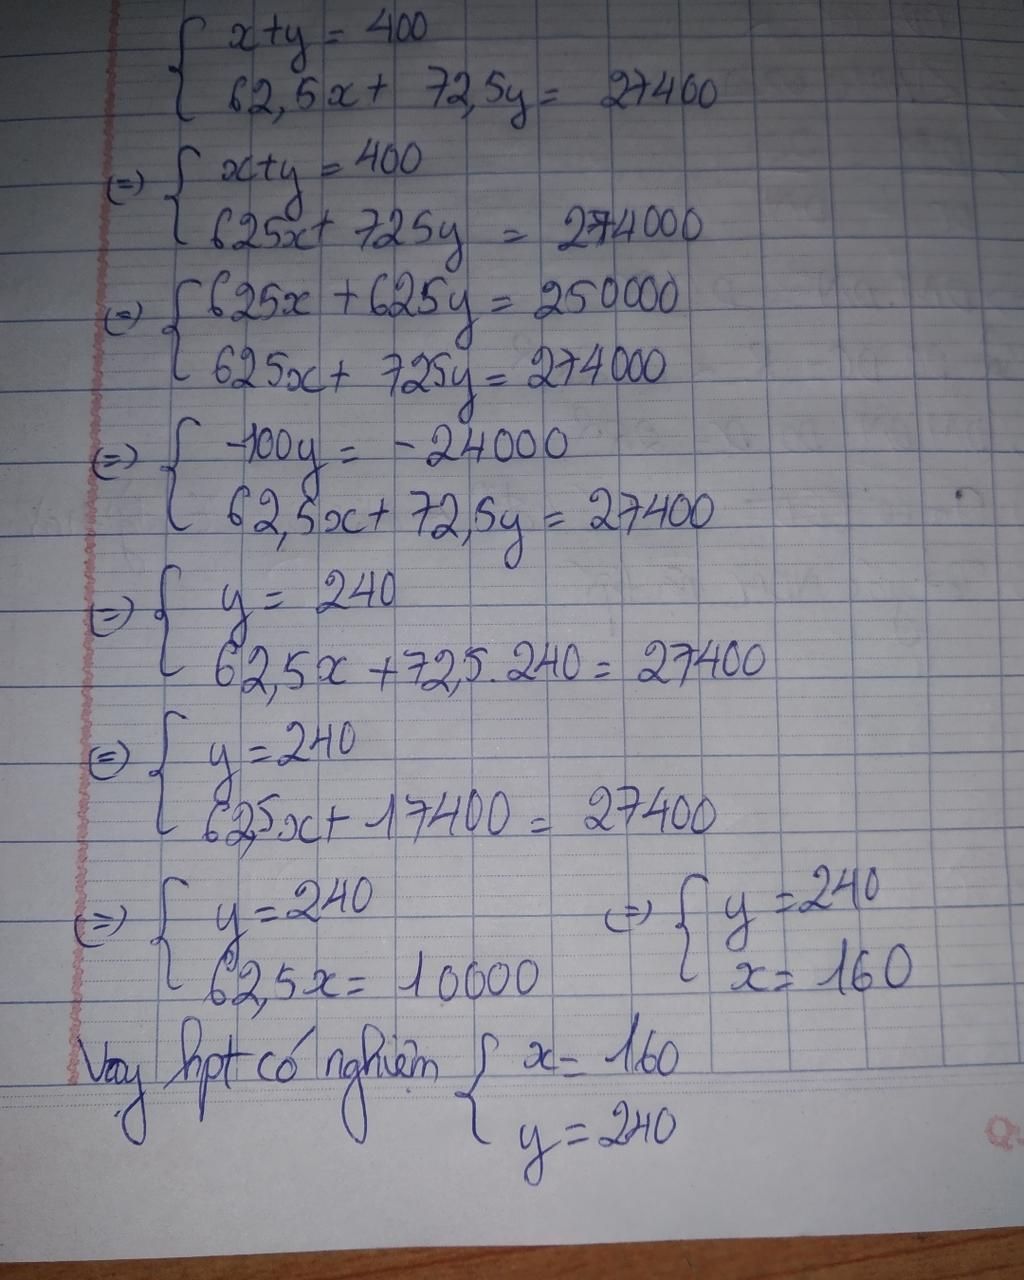 x+y = 400
62,5x + 72,5y = 27400
(=) x+y = 400
625x + 725y = 274000
(=) 625x + 625y = 250000
625x + 725y = 274000
(=) -100y = -24000
62,5x + 72,5y = 27400
(=) y = 240
62,5x + 72,5.240 = 27400
(=) y = 240
62,5x + 17400 = 27400
(=) y = 240 (=) y = 240
62,5x = 10000 x = 160
Vậy hpt có nghiệm x = 160
y = 240